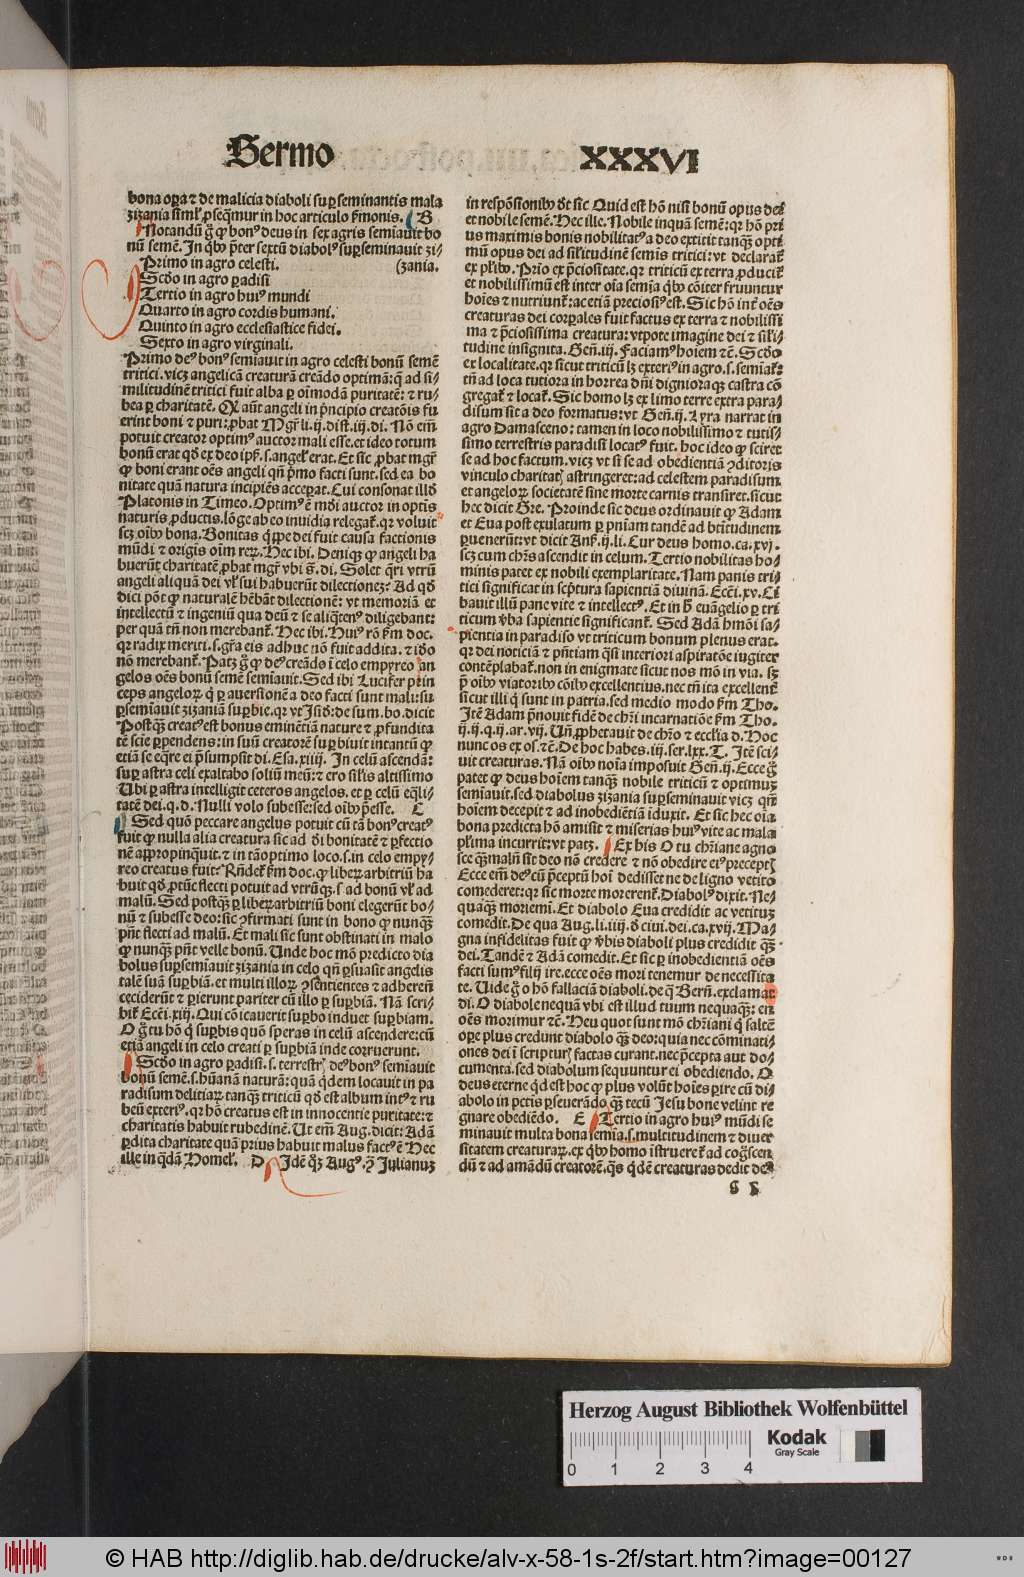 Sermo XXXVI
bona oꝑa ⁊ de malicia diaboli suꝑseminantis mala
zizania siml̓ ꝓseq̄mur in hoc articulo ẜmonis. B
Notandū g̊ ꝙ bonꝰ deus in sex agris semiauit bo
nū semē. In q̇bꝰ p̄ter sextū diabolꝰ suꝑseminauit zi⸗
Primo in agro celesti. (zania.
Scd̓o in agro ꝑadisi
Tertio in agro huiꝰ mundi
Quarto in agro cordis humani.
Quinto in agro ecclesiastice fidei.
Sexto in agro virginali.
Primo deꝰ bonꝰ semiauit in agro celesti bonū semē
tritici. vicꝫ angelicā creaturā creādo optimā: q̄ ad si⸗
militudinē tritici fuit alba ꝑ oīmodā puritatē: ⁊ ru⸗
bea ꝑ charitatē. Qꝫ aūt angeli in p̄ncipio creatōis fu
erint boni ⁊ puri: ꝓbat Mgr̄ li. ij. dist. iij. di. Nō em̄
potuit creator optimꝰ auctor mali esse. et ideo totum
bonū erat qd̓ ex deo ip̄ſ. s. angeꝉ erat. Et sic ꝓbat mgr̄
ꝙ boni erant oēs angeli qn̄ p̄mo facti sunt. sed ea bo
nitate quā natura incipiēs acceꝑat. Cui consonat illd̓
Platonis in Timeo. Optimꝰ ē mūdi auctor in optīs
naturis ꝓductis. lōge ab eo inuidia relegat̄. ꝙ voluit
scꝫ oībꝰ bona. Bonitas q̇ꝓpe dei fuit causa factionis
mūdi ⁊ origīs oīm reꝝ. Hec ibi. Deniqꝫ ꝙ angeli ha
buerūt charitatē ꝓbat mgr̄ vbi s̄. di. Solet q̄ri vtrū
angeli aliquā dei vl̓ sui habuerūt dilectionez? Ad qd̓
dici pōt ꝙ naturalē hēbāt dilectionē: vt memoriā et
intellectū ⁊ ingeniū qua deū ⁊ se aliq̄ten̓ diligebant:
per quā tn̄ non merebant̄. Hec ibi. Huiꝰ rō ẜm doc.
qꝛ radix meriti. s. gr̄a eis adhuc nō fuit addita. ⁊ id̓o
nō merebant̄. Patꝫ g̊ ꝙ deꝰ creādo ī celo empyreo an
gelos oēs bonū semē semiauit. Sed ibi Lucifer prin
ceps angeloꝝ q̇ ꝑ auersionē a deo facti sunt mali: su
ꝑsemiauit zizaniā suꝑbie. qꝛ vt Isid̓: de sum. bo. dicit
Postqꝫ creatꝰ est bonus eminētiā nature ⁊ ꝓfundita
tē scīe ꝑpendens: in suū creatorē suꝑbiuit intantū ꝙ
etiā se eq̄re ei p̄sumpsit di. Esa. xiiij. In celū ascendā:
suꝑ astra celi exaltabo soliū meū: ⁊ ero sil̓is altissimo
Ubi ꝑ astra intelligit ceteros angelos. et ꝑ celū eq̄li⸗
tatē dei. q. d. Nulli volo subesse: sed oībꝰ p̄esse. C
Sed quō peccare angelus potuit cū tā bonꝰ creatꝰ
fuit ꝙ nulla alia creatura sic ad d̓i bonitatē ⁊ ꝑfectio
nē appropinquit. ⁊ in tā optimo loco. s. in celo empy⸗
reo creatus fuit? Rn̄det̄ ẜm doc. ꝙ libeꝝ arbitriū ha
buit qd̓ ꝓtūc flecti potuit ad vtrūqꝫ. s. ad bonū vl̓ ad
malū. Sed postqꝫ ꝑ libeꝝ arbitriū boni elegerūt bo⸗
nū ⁊ subesse deo: sic ꝯfirmati sunt in bono ꝙ nunqꝫ
pn̄t flecti ad malū. Et mali sic sunt obstinati in malo
ꝙ nunqꝫ pn̄t velle bonū. Unde hoc mō predicto dia
bolus suꝑsemiauit zizania in celo qn̄ ꝑsuasit angelis
talē suā suꝑbiā. et multi illoꝝ ꝯsentientes ⁊ adherēn̄
ceciderūt ⁊ ꝑierunt pariter cū illo ꝑ suꝑbiā. Nā scri⸗
bit̄ Ecc̄i. xiij. Qui cōicauerit suꝑbo induet suꝑbiam.
O g̊ tu hō q̇ suꝑbis quō speras in celū ascendere: cū
etiā angeli in celo creati ꝑ suꝑbiā inde corruerunt.
Scd̓o in agro ꝑadisi. s. terrestrꝫ deꝰ bonꝰ semiauit
bonū semē. s. hūanā naturā: quā q̇dem locauit in pa
radisum delitiaꝝ tanqꝫ triticū qd̓ est album intꝰ ⁊ ru
beū exteriꝰ. qꝛ hō creatus est in innocentie puritate: ⁊
charitatis habuit rubedinē. Ut em̄ Aug. dicit: Adā
ꝑdita charitate quā prius habuit malus factꝰ ē Hec
ille in q̇dā Homel̓. D Idē q̇ꝫ Augꝰ. ꝯ̄ Julianuꝫ
in respōsionibꝰ d̓t sic Quid est hō nisi bonū opus dei
et nobile semē. Hec ille. Nobile inquā semē: qꝛ hō pri
us maximis bonis nobilitatꝰ a deo extitit tanqꝫ opti
mū opus dei ad sil̓itudinē semis tritici: vt declarat̄
ex pl̓ibꝰ. Prīo ex p̄ciositate. qꝛ triticū ex terra ꝓducit̄
et nobilissimū est inter oīa semīa q̇bꝰ cōiter fruuntur
hoīes ⁊ nutriunt̄: ac etiā preciosiꝰ est. Sic hō int̄ oēs
creaturas dei corꝑales fuit factus ex terra ⁊ nobilissi
ma ⁊ p̄ciosissima creatura: vtpote imagine dei ⁊ sil̓i⸗
tudine insignita. Geñ. iij. Faciamꝰ hoīem ⁊c̄. Scd̓o
ex localitate. qꝛ sicut triticū lꝫ exteriꝰ in agro. s. semiat̄:
tn̄ ad loca tutiora in horrea dn̄i digniora qꝫ castra cō
gregat̄ ⁊ locat̄. Sic homo lꝫ ex limo terre extra para⸗
disum sit a deo formatus: vt Geñ. ij. Lyra narrat in
agro Damasceno: tamen in loco nobilissimo ⁊ tutis⸗
simo terrestris paradisi locatꝰ fuit. hoc ideo ꝙ sciret
se ad hoc factum. vicꝫ vt si se ad obedientiā ꝯditoris
vinculo charitatꝫ astringeret: ad celestem paradisum
et angeloꝝ societatē sine morte carnis transiret. sicut
hec dicit Gre. Proinde sic deus ordinauit ꝙ Adam
et Eua post exulatum ꝑ pn̄iam tandē ad btītudinem
ꝑuenerūt: vt dicit Anſ. ij. li. Cur deus homo. ca. xvj.
scꝫ cum chr̄s ascendit in celum. Tertio nobilitas ho⸗
minis patet ex nobili exemplaritate. Nam panis tri⸗
tici significat in scp̄tura sapientiā diuinā. Ecc̄i. xv. Ci
bauit illū pane vite ⁊ intellectꝰ. Et in h̄ euāgelio ꝑ tri
ticum v̓ba sapientie significant̄. Sed Adā hmōi sa⸗
pientia in paradiso vt triticum bonum plenus erat.
qꝛ dei noticiā ⁊ pn̄tiam q̄si interiori aspiratōe iugiter
contēplabat̄. non in enigmate sicut nos mō in via. sꝫ
p̄ oībꝰ viatoribꝰ cōibꝰ excellentius. nec tn̄ ita excellent̄
sicut illi q̇ sunt in patria. sed medio modo ẜm Tho.
Itē Adam p̄nouit fidē de chr̄i incarnatiōe ẜm Tho.
ij. ij. q. ij. ar. vij. Un̄ ꝓphetauit de chr̄o ⁊ eccl̓ia d. Hoc
nunc os ex os. ⁊c̄. De hoc habes. iij. ser. lxx. T. Itē sci⸗
uit creaturas. Nā oībꝰ noīa imposuit Geñ. ij. Ecce g̊
patet ꝙ deus hoīem tanqꝫ nobile triticū ⁊ optimuꝫ
semiauit. sed diabolus zizania suꝑseminauit vicꝫ qn̄
hoīem decepit ⁊ ad inobediētiā īduxit. Et sic hec oīa
bona predicta hō amisit ⁊ miserias huiꝰ vite ac mala
pl̓ima incurrit: vt patꝫ. Ex his O tu chr̄iane agno
sce qꝫ malū sit deo nō credere ⁊ nō obedire eiꝰ preceptꝫ
Ecce em̄ deꝰ cū p̄ceptū hoī dedisset ne de ligno vetito
comederet: qꝛ sic morte morerent̄. Diabolꝰ dixit. Ne⸗
quaqꝫ moriemī. Et diabolo Eua credidit ac vetituꝫ
comedit. De qua Aug. li. iiij. d̓ ciui. dei. ca. xvij. Ma⸗
gna infidelitas fuit ꝙ v̓bis diaboli plus credidit qꝫ
dei. Tandē ⁊ Adā comedit. Et sic ꝑ inobedientiā oēs
facti sumꝰ filij ire. ecce oēs mori tenemur de necessita
te. Uide g̊ o hō fallaciā diaboli. de q̄ Berñ. exclamat
di. O diabole nequā vbi est illud tuum nequaqꝫ: en
oēs morimur ⁊c̄. Heu quot sunt mō chr̄iani q̇ saltē
oꝑe plus credunt diabolo qꝫ deo: quia nec cōminati⸗
ones dei ī scripturꝫ factas curant. nec p̄cepta aut do⸗
cumenta. sed diabolum sequuntur ei obediendo. O
deus eterne q̇d est hoc ꝙ plus volūt hoīes ꝑire cū di⸗
abolo in pctīs ꝑseuerādo qꝫ tecū Jesu bone velint re
gnare obediēdo. E Tertio in agro huiꝰ mūdi se
minauit multa bona semīa. s. multitudinem ⁊ diuer
sitatem creaturaꝝ. ex q̇bꝰ homo īstruere̓t ad cog̊scen
dū ⁊ ad amādū creatorē. q̄s q̇dē creaturas dedit deꝰ
Herzog August Bibliothek Wolfenbüttel
Kodak
Gray Scale
0 1 2 3 4
© HAB http://diglib.hab.de/drucke/alv-x-58-1s-2f/start.htm?image=00127